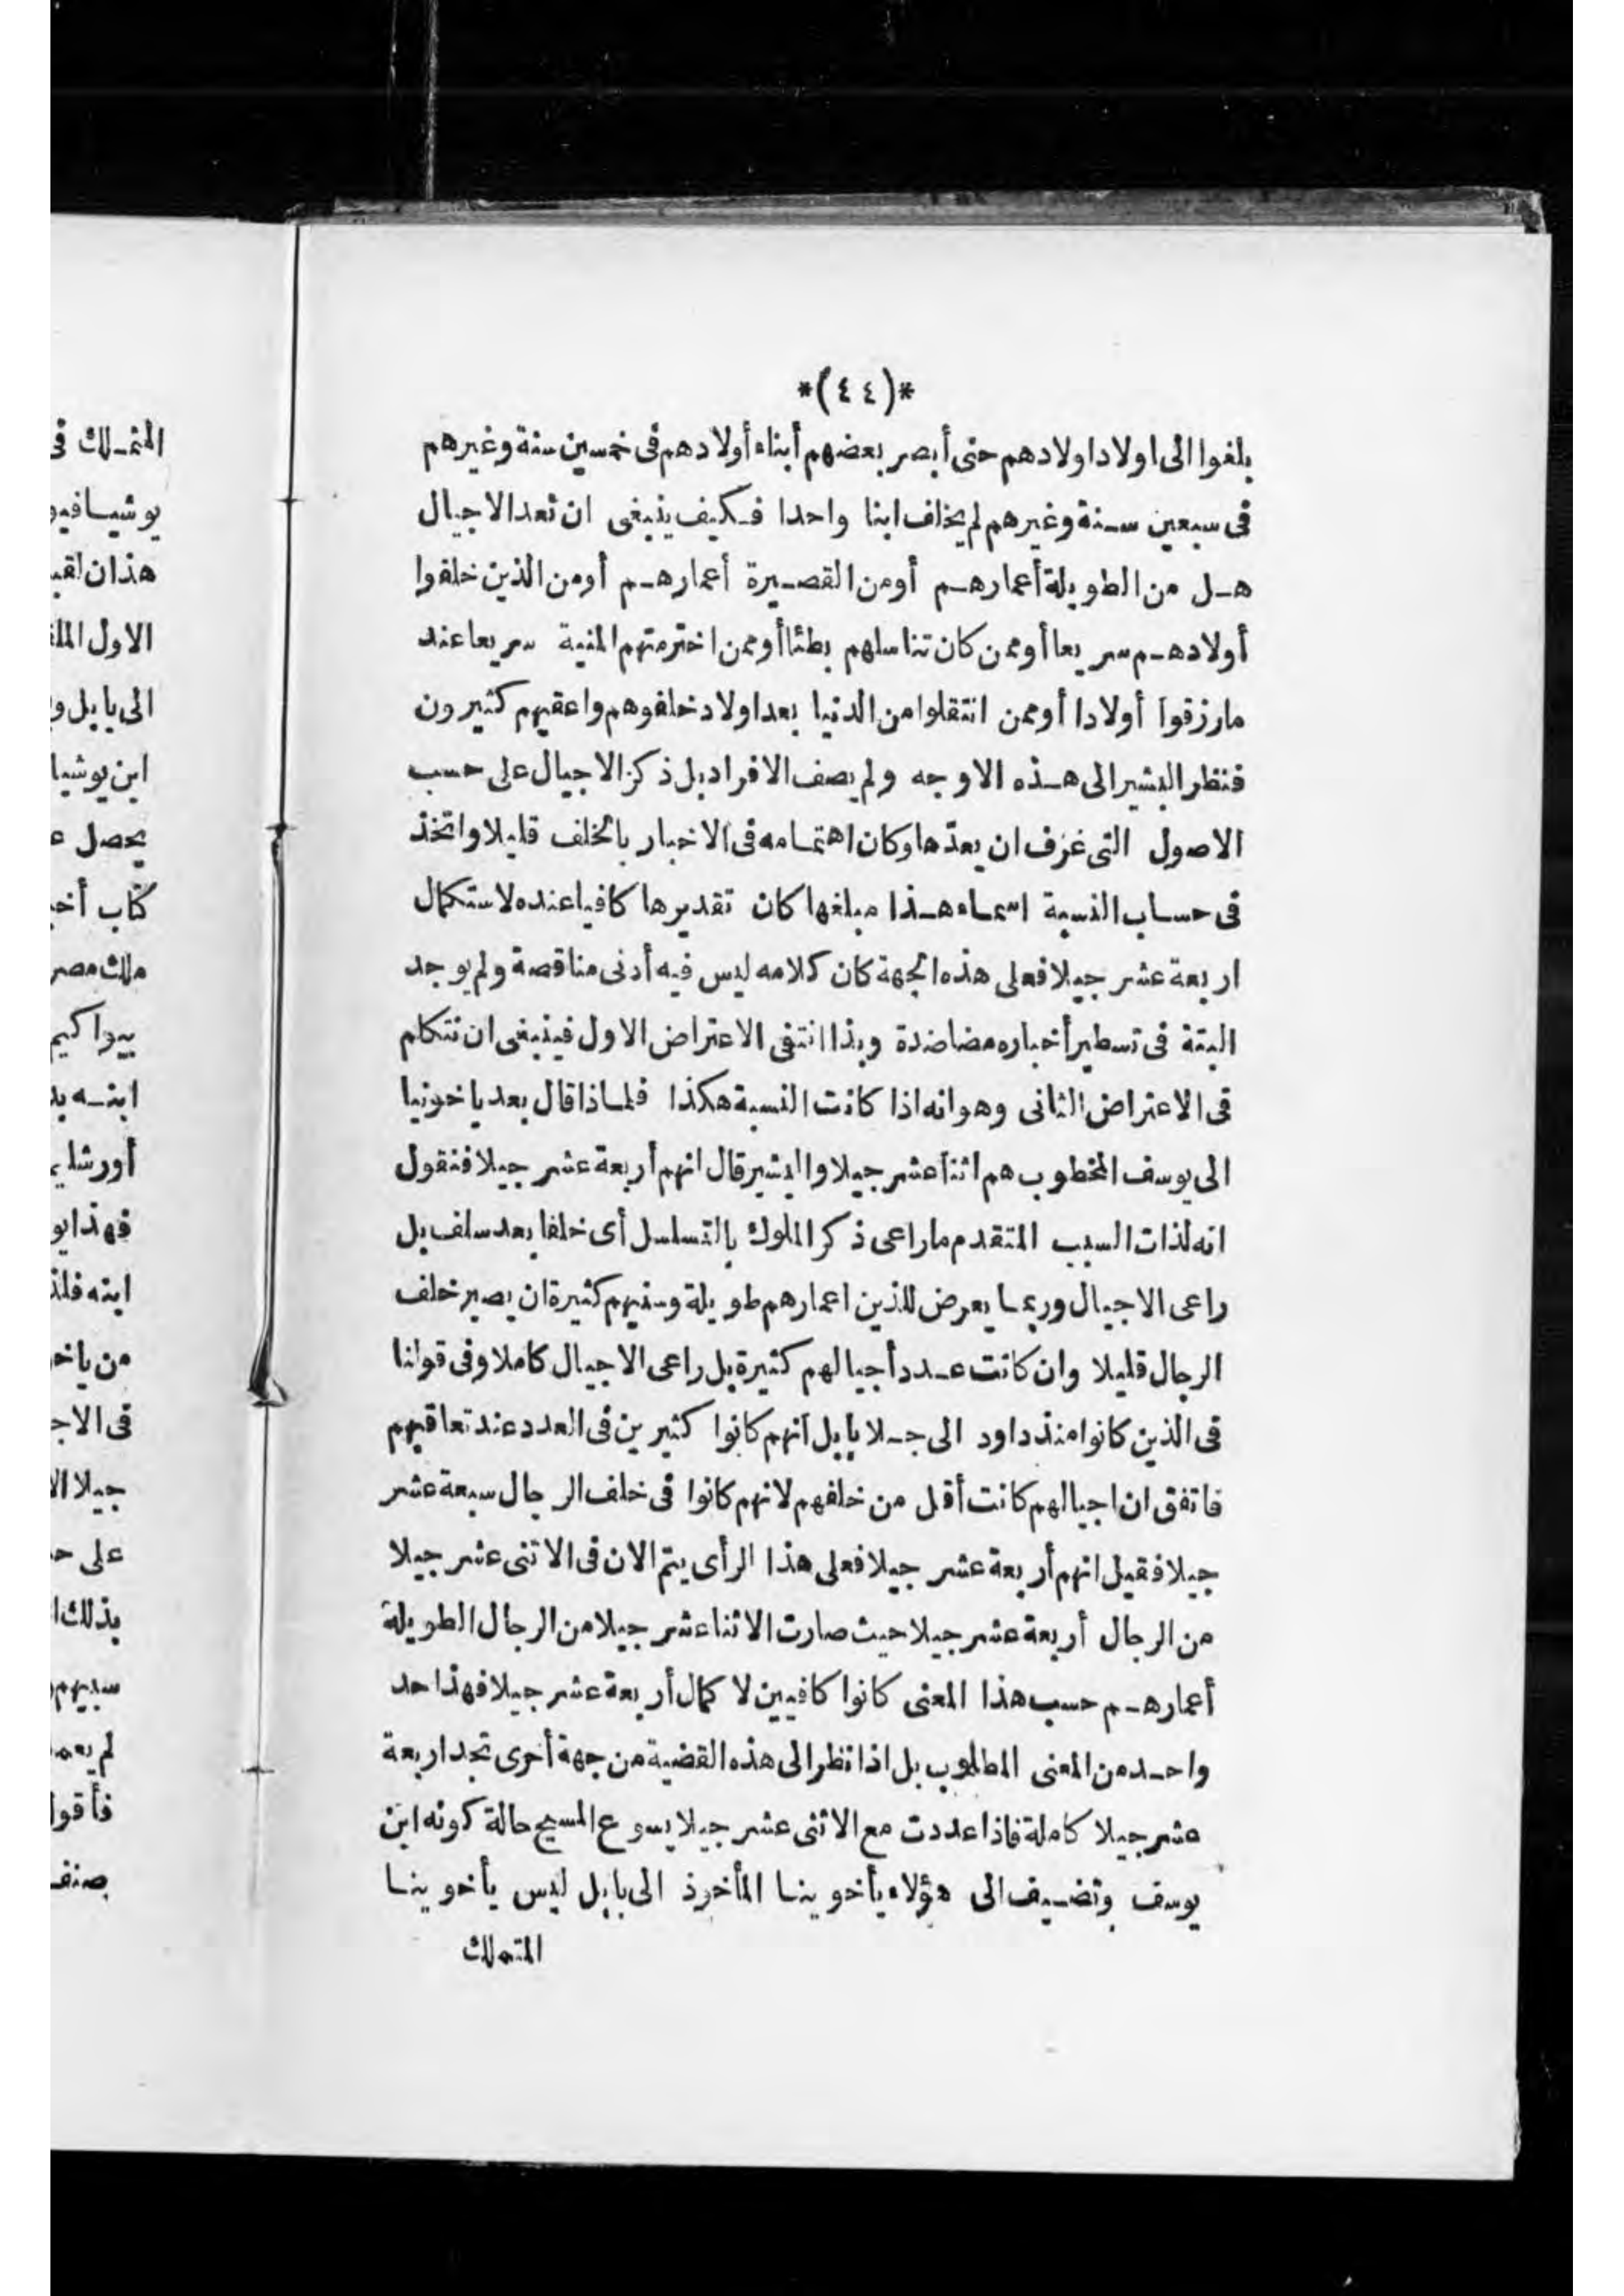 *(٤٤)*
بلغوا الى اولاد اولادهم حتى أبصر بعضهم أبناء أولادهم فى خمسين سنة وغيرهم
فى سبعين سنة وغيرهم لم يخلف ابنا واحدا فكيف ينبغى ان تعد الاجيال
هل من الطويلة أعمارهم أومن القصيرة أعمارهم أومن الذين خلفوا
أولادهم سريعا أوممن كان تناسلهم بطئا أوممن اخترمتهم المنية سريعا عند
مارزقوا أولادا أوممن انتقلوا من الدنيا بعد اولاد خلفوهم واعقبهم كثيرون
فنظر البشير الى هذه الاوجه ولم يصف الافراد بل ذكر الاجيال على حسب
الاصول التى عرف ان يعدّها وكان اهتمامه فى الاخبار بالخلف قليلا واتخذ
فى حساب النسبة اسماء هذا مبلغها كان تقديرها كافيا عنده لاستكمال
اربعة عشر جيلا فعلى هذه الجهة كان كلامه ليس فيه أدنى مناقصة ولم يوجد
البتة فى تسطير أخباره مضاضدة وبذا انتفى الاعتراض الاول فينبغى ان نتكلم
فى الاعتراض الثانى وهو انه اذا كانت النسبة هكذا فلماذا قال بعد ياخونيا
الى يوسف المخطوب هم اثنا عشر جيلا والبشير قال انهم أربعة عشر جيلا فنقول
انه لذات السبب المتقدم ماراعى ذكر الملوك بالتسلسل أى خلفا بعد سلف بل
راعى الاجيال وربما يعرض للذين اعمارهم طويلة وسنيهم كثيرة ان يصير خلف
الرجال قليلا وان كانت عدد أجيالهم كثيرة بل راعى الاجيال كاملا وفى قولنا
فى الذين كانوا منذ داود الى جلا بابل انهم كانوا كثيرين فى العدد عند تعاقبهم
فاتفق ان اجيالهم كانت أقل من خلفهم لانهم كانوا فى خلف الرجال سبعة عشر
جيلا فقيل انهم أربعة عشر جيلا فعلى هذا الرأى يتمّ الان فى الاثنى عشر جيلا
من الرجال أربعة عشر جيلا حيث صارت الاثنا عشر جيلا من الرجال الطويلة
أعمارهم حسب هذا المعنى كانوا كافيين لا كمال أربعة عشر جيلا فهذا حد
واحد من المعنى المطلوب بل اذا نظر الى هذه القضية من جهة أخرى تجد اربعة
عشر جيلا كاملة فاذا عددت مع الاثنى عشر جيلا يسوع المسيح حالة كونه ابن
يوسف وتضيف الى هؤلاء يأخوينا المأخوذ الى بابل ليس يأخوينا
المتملك
المتملك فى
يوشيا
هذان
الاول
الى بابل
ابن يوشيا
يحصل
كتاب
ملك مصر
يواكيم
ابنه
فهذا
ابنه
من
فى
جيلا
على
بذلك
لم